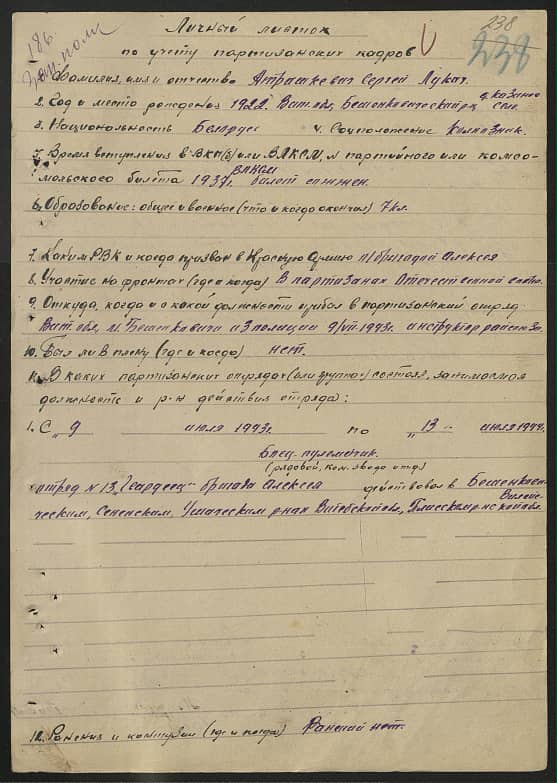 238
186
238
Личный листок
по учету партизанских кадров
1. Фамилия, имя и отчество Атрашкевич Сергей Лукич.
2. Год и место рождения 1922. Вит. обл., Бешенковический р-н д. Казино
3. Национальность Белорус 4. Соцположение колхозник.
5. Время вступления в ВКП(б) или ВЛКСМ, № партийного или комсо-
мольского билета 1937г. ВЛКСМ билет сожжен.
6. Образование: общее и военное (что и когда окончил) 7 кл.
7. Каким РВК и когда призван в Красную Армию п/бригадой Алексея
8. Участие на фронтах (где и когда) В партизанах Отечественной
9. Откуда, когда и с какой должности прибыл в партизанский отряд
Вит. обл., м. Бешенковичи из полиции 9/VII.1943г. инструктор
10. Был ли в плену (где и когда) нет.
11. В каких партизанских отрядах (или группах) состоял, занимаемая
должность и р-н действия отряда:
1. С „9 июля 1943г. по „13" июля 1944
Боец-пулеметчик.
(рядовой, ком. взвода и тд)
отряд №13, „Гвардеец" бригада Алексея действовал в Бешенкови-
ческим, Сененским, Ушачским р-нах Витебской обл.,
12. Ранения и контузии (где и когда) Ранений нет.